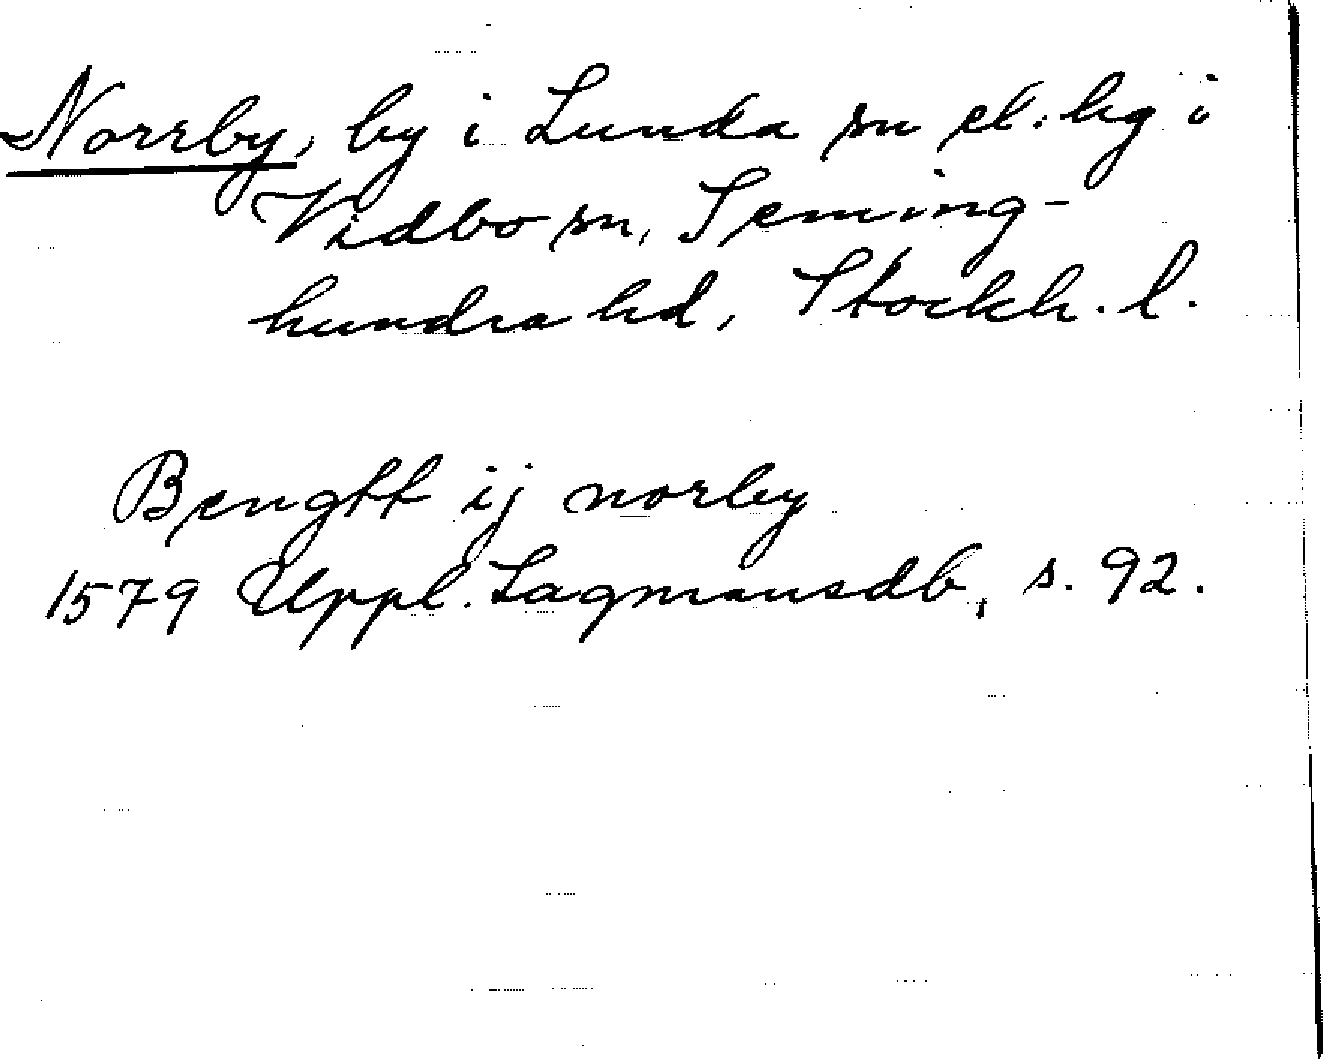 Norrby, by i Lunda sn el. hg i
Vidbo sn, Seming-
hundra hd, Stockh. l.
Bengtt ij norby
1579 Uppl. Lagmansdb, s. 92.